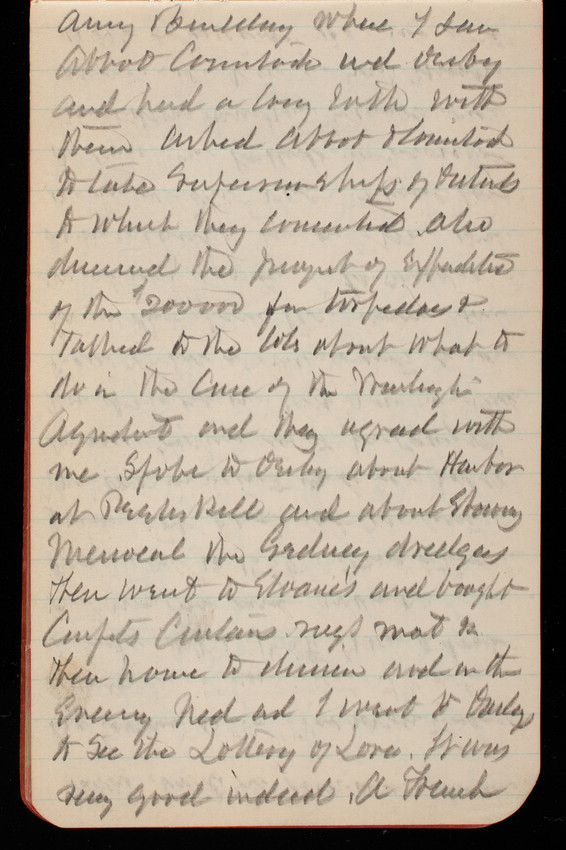 Army Building where I saw
Abbot Comstock and Derby
and had a long talk with
them asked Abbot & Comstock
to take supervisorships of Details
to which they consented also
discussed the project of Expenditure
of the $200000 for torpedoes &
Talked to the Cols about what to
do in the case of the Washington
Aqueduct and they agreed with
me Spoke to Derby about Harbor
at Peekskill and about Showing
the Gedney dredges
then went to Sloane's and bought
Carpets Curtains rugs mat &
then home to dinner and in the
Evening Ned and I went to Daly
to see the Lottery of Love. It was
very good indeed. A French